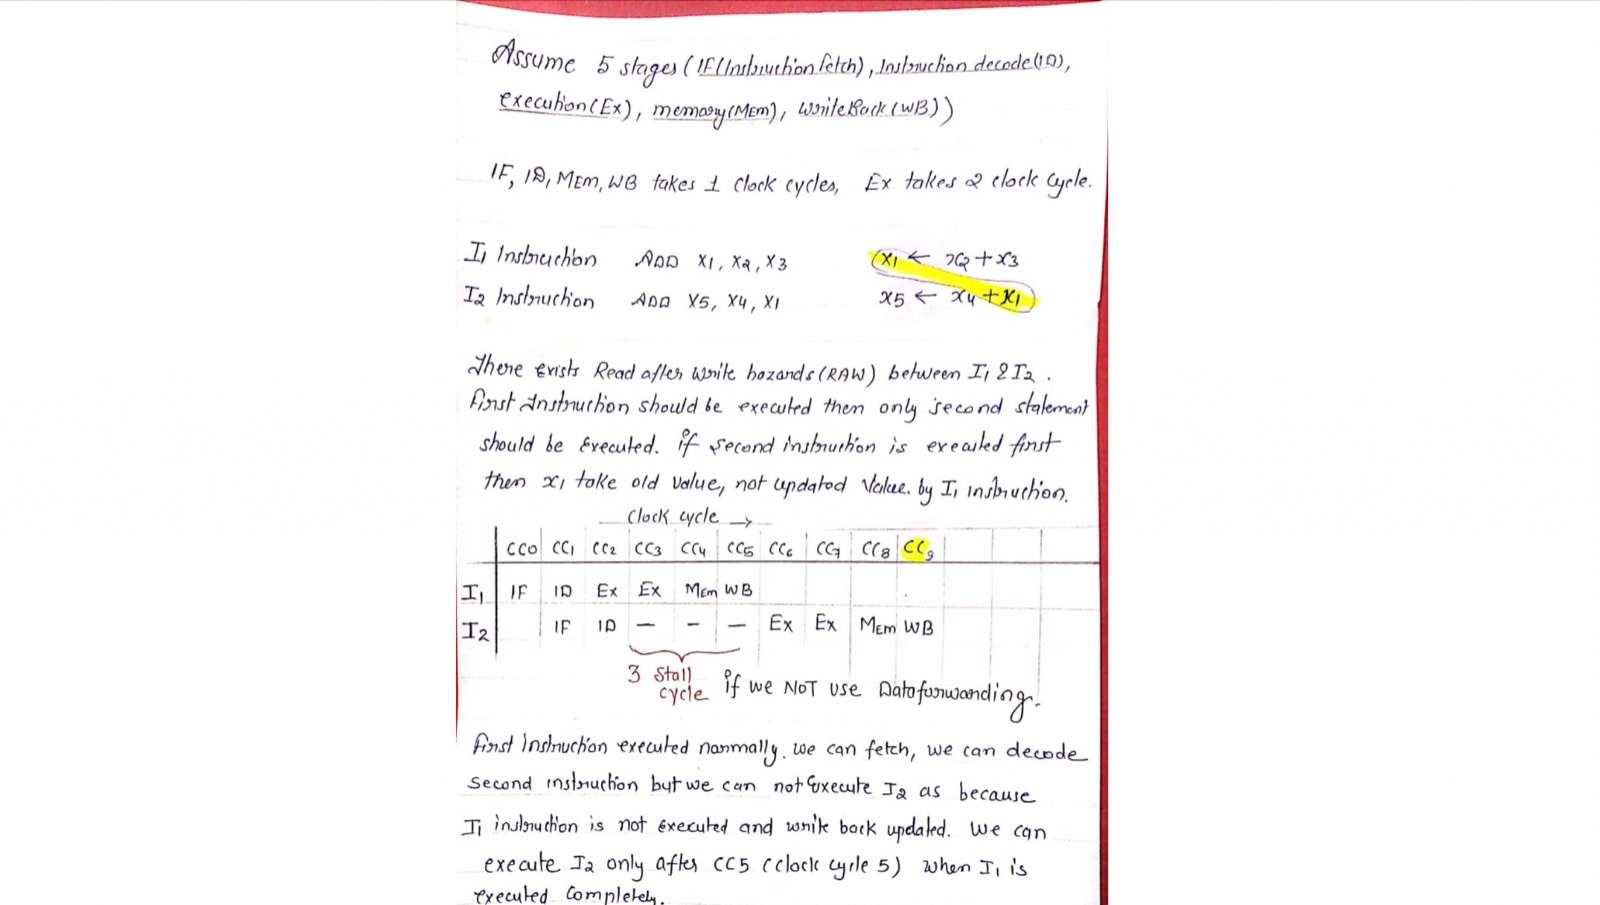 Assume 5 stages (IF(Instruction fetch), Instruction decode(ID),
execution(Ex), memory(MEm), WriteBack(WB))
IF, ID, MEm, WB takes 1 Clock cycles, Ex takes 2 clock Cycle.
I1 Instruction ADD X1, X2, X3 X1 ← X2 + X3
I2 Instruction ADD X5, X4, X1 X5 ← X4 + X1
There Exists Read after Write hazards (RAW) between I1 & I2.
First Instruction should be executed then only second statement
should be Executed. if second instruction is executed first
then X1 take old value, not updated Value. by I1 instruction.
Clock cycle →
CC0 CC1 CC2 CC3 CC4 CC5 CC6 CC7 CC8 CC9
I1 IF ID Ex Ex MEm WB
I2 IF ID – – – Ex Ex MEm WB
3 Stall
cycle if we NOT use Dataforwarding.
First Instruction executed normally. we can fetch, we can decode
Second instruction but we can not Execute I2 as because
I1 instruction is not executed and write back updated. We can
execute I2 only after CC5 (clock cycle 5) when I1 is
executed Completely.